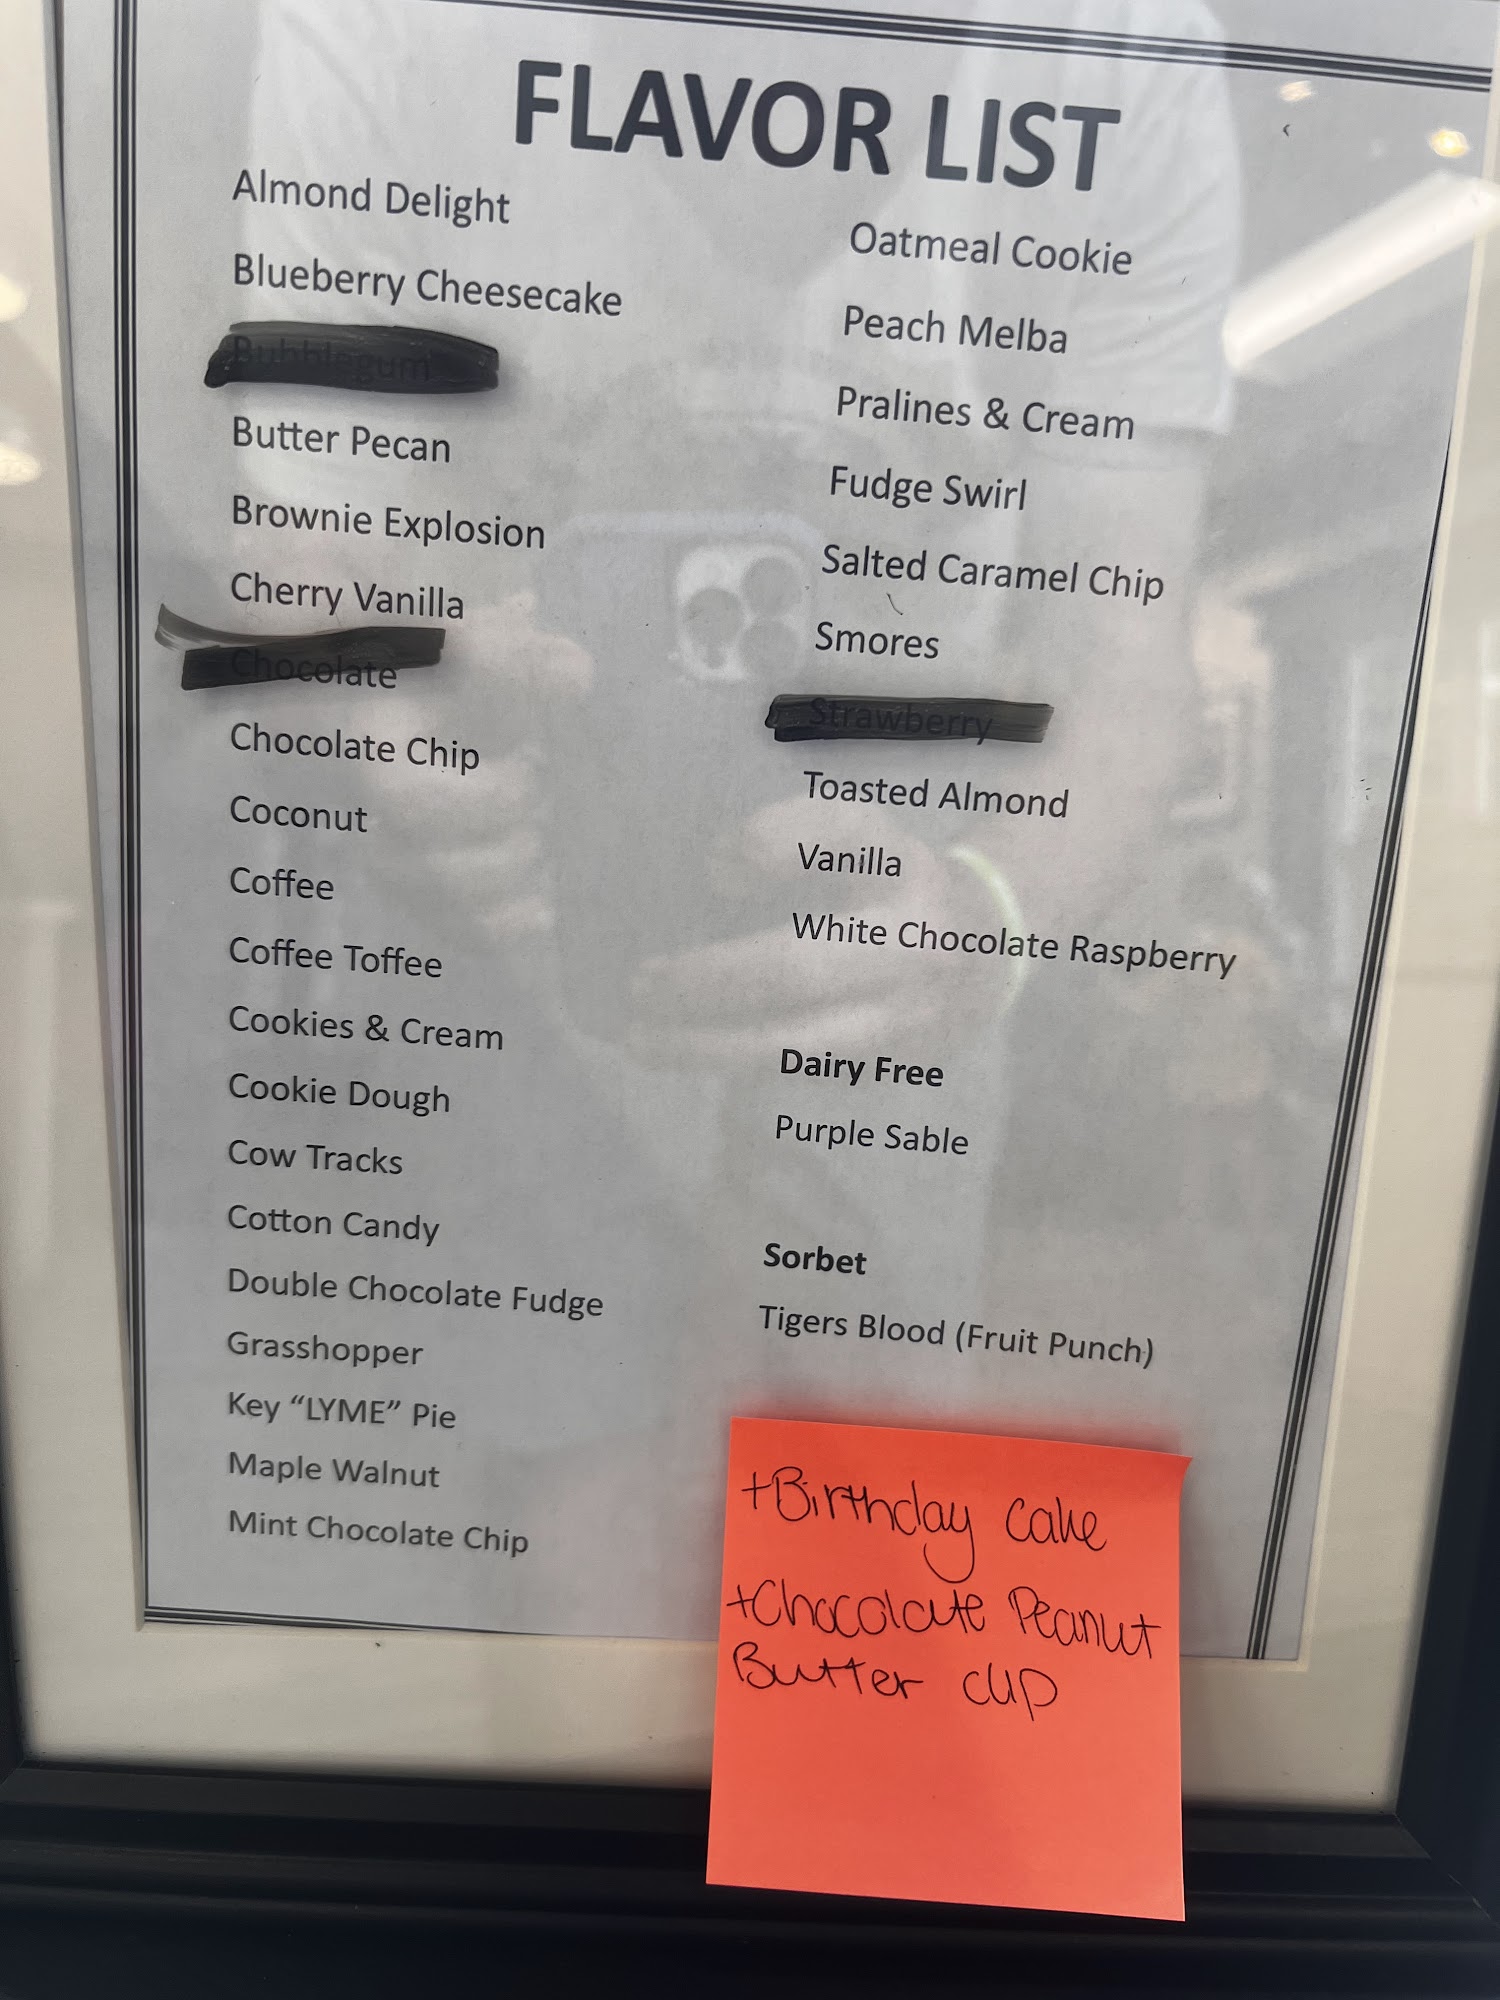 FLAVOR LIST
Almond Delight
Blueberry Cheesecake
Bubblegum
Butter Pecan
Brownie Explosion
Cherry Vanilla
Chocolate
Chocolate Chip
Coconut
Coffee
Coffee Toffee
Cookies & Cream
Cookie Dough
Cow Tracks
Cotton Candy
Double Chocolate Fudge
Grasshopper
Key “LYME” Pie
Maple Walnut
Mint Chocolate Chip
Oatmeal Cookie
Peach Melba
Pralines & Cream
Fudge Swirl
Salted Caramel Chip
Smores
Strawberry
Toasted Almond
Vanilla
White Chocolate Raspberry
Dairy Free
Purple Sable
Sorbet
Tigers Blood (Fruit Punch)
+Birthday cake
+Chocolate Peanut
Butter cup